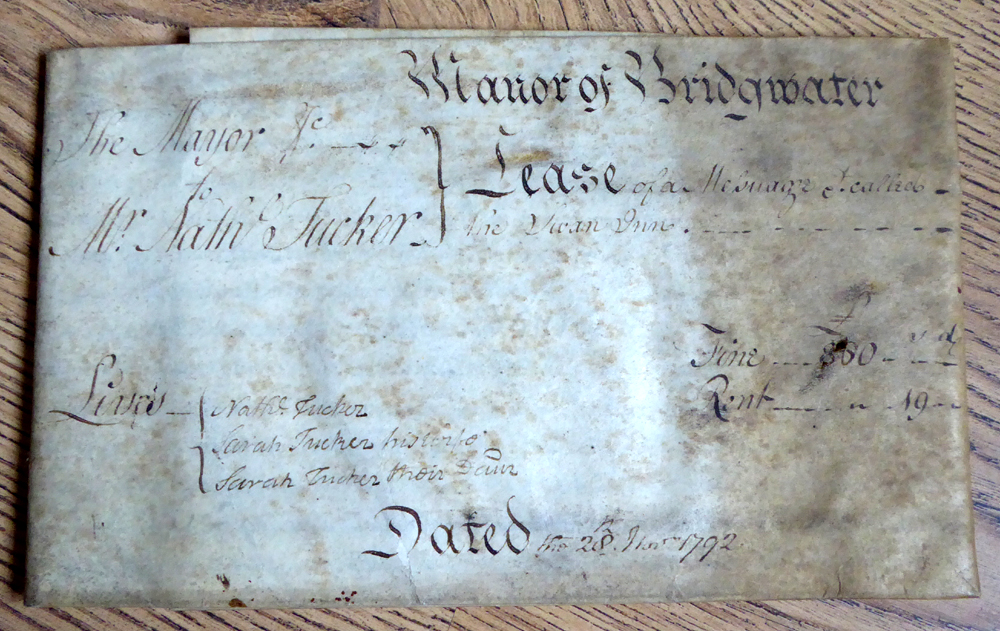 Manor of Bridgwater
The Mayor &c.
to
Mr. Nathl. Tucker
Lease of a Mesuage &c called
the Swan Inn.
£ s d
Fine 360
Rent " 19
Lives
Nathl. Tucker
Sarah Tucker his wife
Sarah Tucker their Daur
Dated the 28th Novr 1792